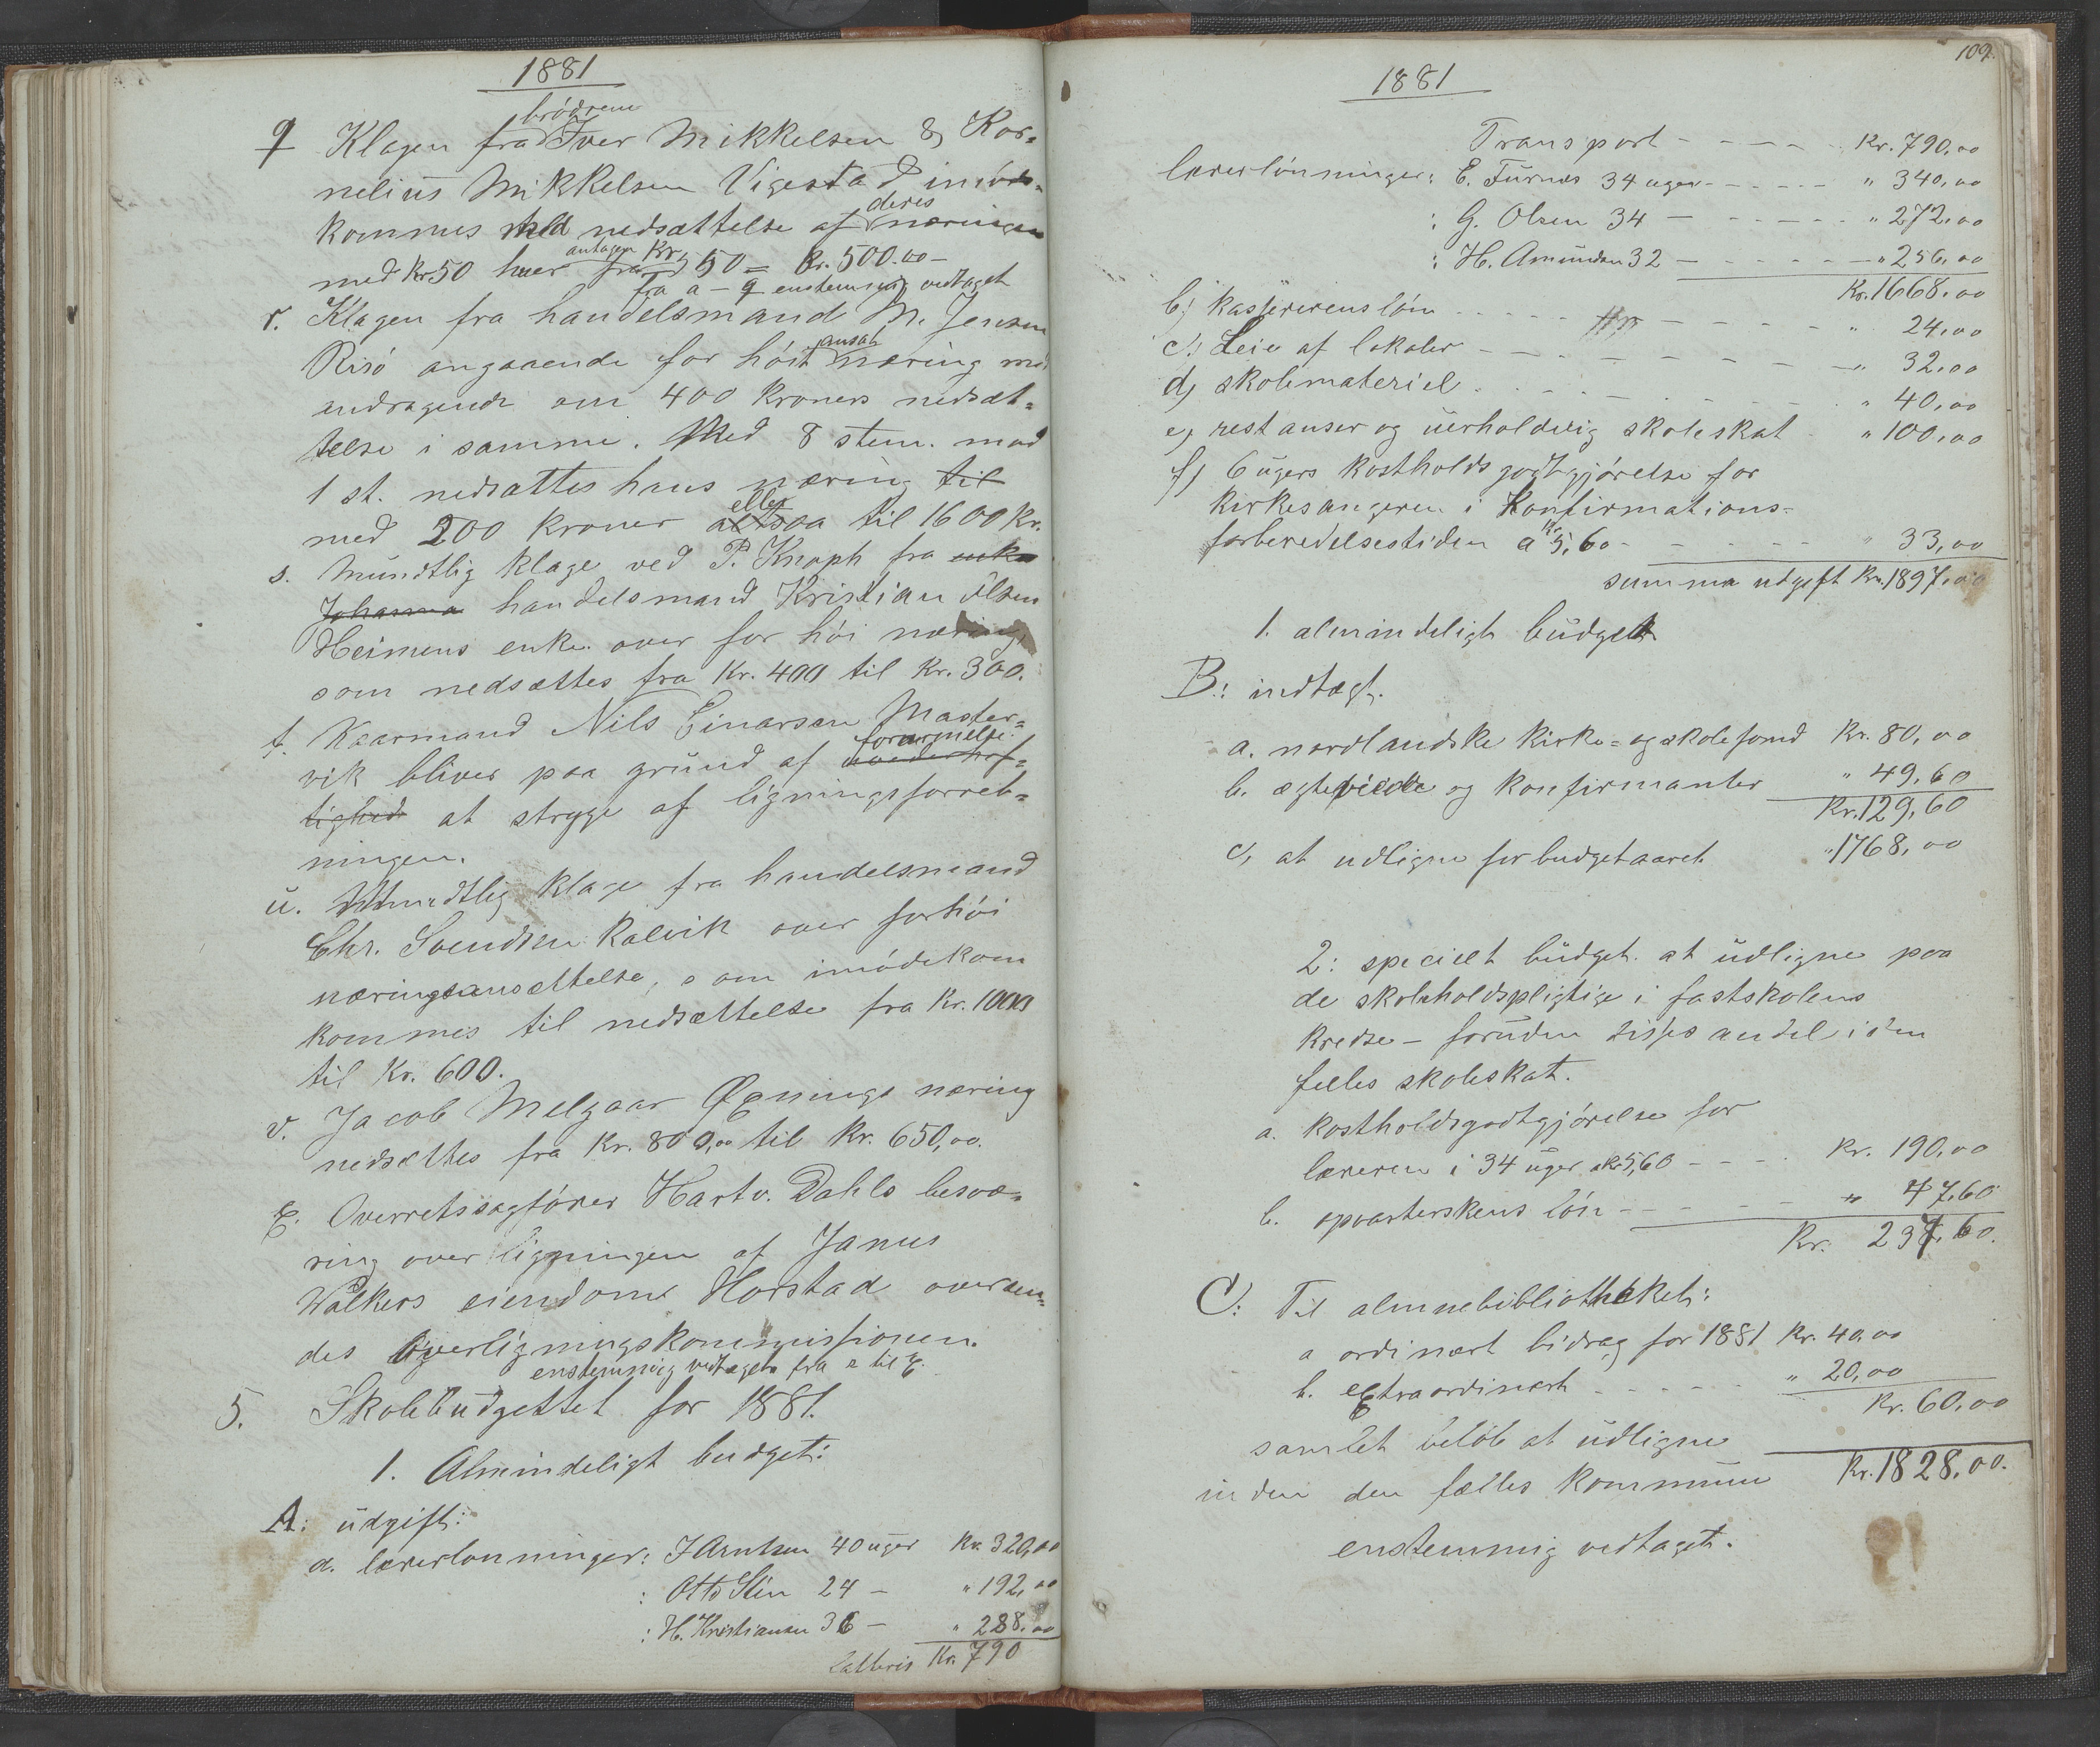 1881
brødrene
q Klagen fra Iver Mikkelsen & Kor=
nelius Mikkelsen Vigestad imøde=
deris
kommes med nedsættelse af næringen
antagen Kr.
med Kr 50 hver fra 550 = Kr. 500.00 -
fra a - q enstemmig vedtaget
r. Klagen fra handelsmand M. Jensen
ansat
Risø angaaende for høit næring med
andragende om 400 kroners nedsæt=
telse i samme. Med 8 stem. mod
1 st. nedsættes hans næring til
eller
med 200 kroner altsaa til 1600 Kr.
s. Mundtlig klage ved P. Knoph fra enke
Johanna handelsmand Kristian Olsen
Heimens enke over for høi næring,
som nedsættes fra Kr. 400 til Kr. 300.
t. Kaarmand Nils Einarsen Master=
forarmelse
vik bliver paa grund af uvederhef=
tighed at stryge af ligningsforret=
ningen.
u. Mundtlig klage fra handelsmand
Chr. Svendsen Kalvik over forhøi
næringsansættelse, som imødekom
kommes til nedsættelse fra Kr. 1000
til Kr. 600.
v. Jacob Melgaar Øxnings næring
nedsættes fra Kr. 800,00 til Kr. 650,00.
x. Overretssagfører Hartv. Dahls besvæ=
ring over ligningen af Janus
Walkers eiendom Horstad oversen=
des Overligningskommissionen.
enstemmig vedtaget fra r til x.
5. Skolebudgettet for 1881.
1. Almindeligt budget:
A: udgift:
a. lærerlønninger: J Arntsen 40 uger Kr. 320,00
: Otto Stin 24 - " 192,00
: H. Kristiansen 36 - " 288,00
latteris Kr. 790
109.
1881
Transport - - - - - Kr. 790,00
lærerlønninger: E. Furnes 34 uger - - - - - " 340,00
: G. Olsen 34 - - - - - - " 272,00
: H. Amundsen 32 - - - - - - " 256,00
Kr. 1668,00
b) kassererens løn - - - - - - - - " 24,00
c) Leie af lokaler - - - - - - - - " 32,00
d) skolemateriel - - - - - - - " 40,00
e) restanser og uerholdelig skoleskat - " 100,00
f) 6 ugers kostholdsgodtgjørelse for
kirkesangeren i Konfirmations=
forberedelsestiden a Kr 5,60 - - - - - " 33,00
summa udgift Kr. 1897,00
1. almindeligt budget
B: indtægt.
a. nordlandske kirke= og skolefond Kr. 80,00
b. ægteviede og konfirmanter " 49,60
Kr. 129,60
c, at udligne for budgetaaret " 1768,00
2: specielt budget at udligne paa
de skoleholdspligtige i fastskolens
kredse - foruden disses andel i den
felles skoleskat.
a. kostholdsgodtgjørelse for
læreren i 34 uger a Kr 5,60 - - - - Kr. 190,00
b. opvarterskens løn - - - - - " 47,60
Kr. 237,60.
C: Til almuebibliotheket:
a ordinært bidrag for 1881 Kr. 40,00
b. extraordinært - - - - - " 20,00
Kr. 60,00
samlet beløb at udligne
inden den fælles kommune Kr. 1828,00.
enstemmig vedtaget.